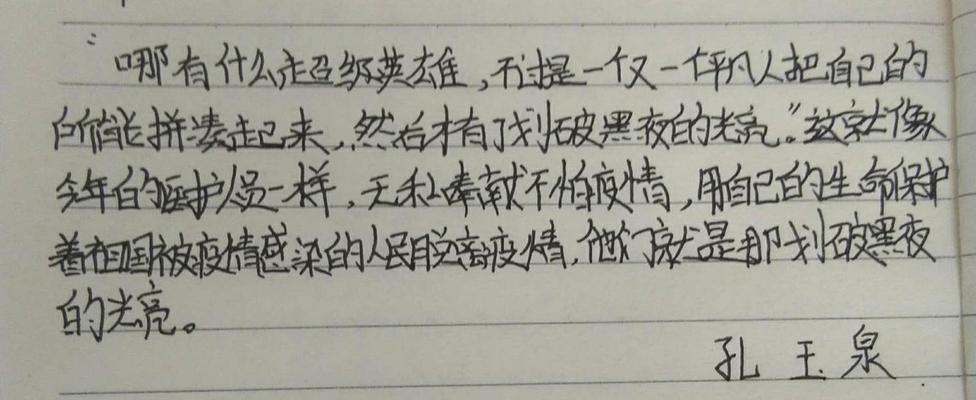 “哪有什么超级英雄，不过是一个又一个平凡人把自己的
所能拼凑起来，然后才有了划破黑夜的光亮。”这就像
今年的医护人员一样，无私奉献不怕疫情，用自己的生命保护
着祖国被疫情感染的人民脱离疫情，他们就是那划破黑夜
的光亮。
孔玉泉